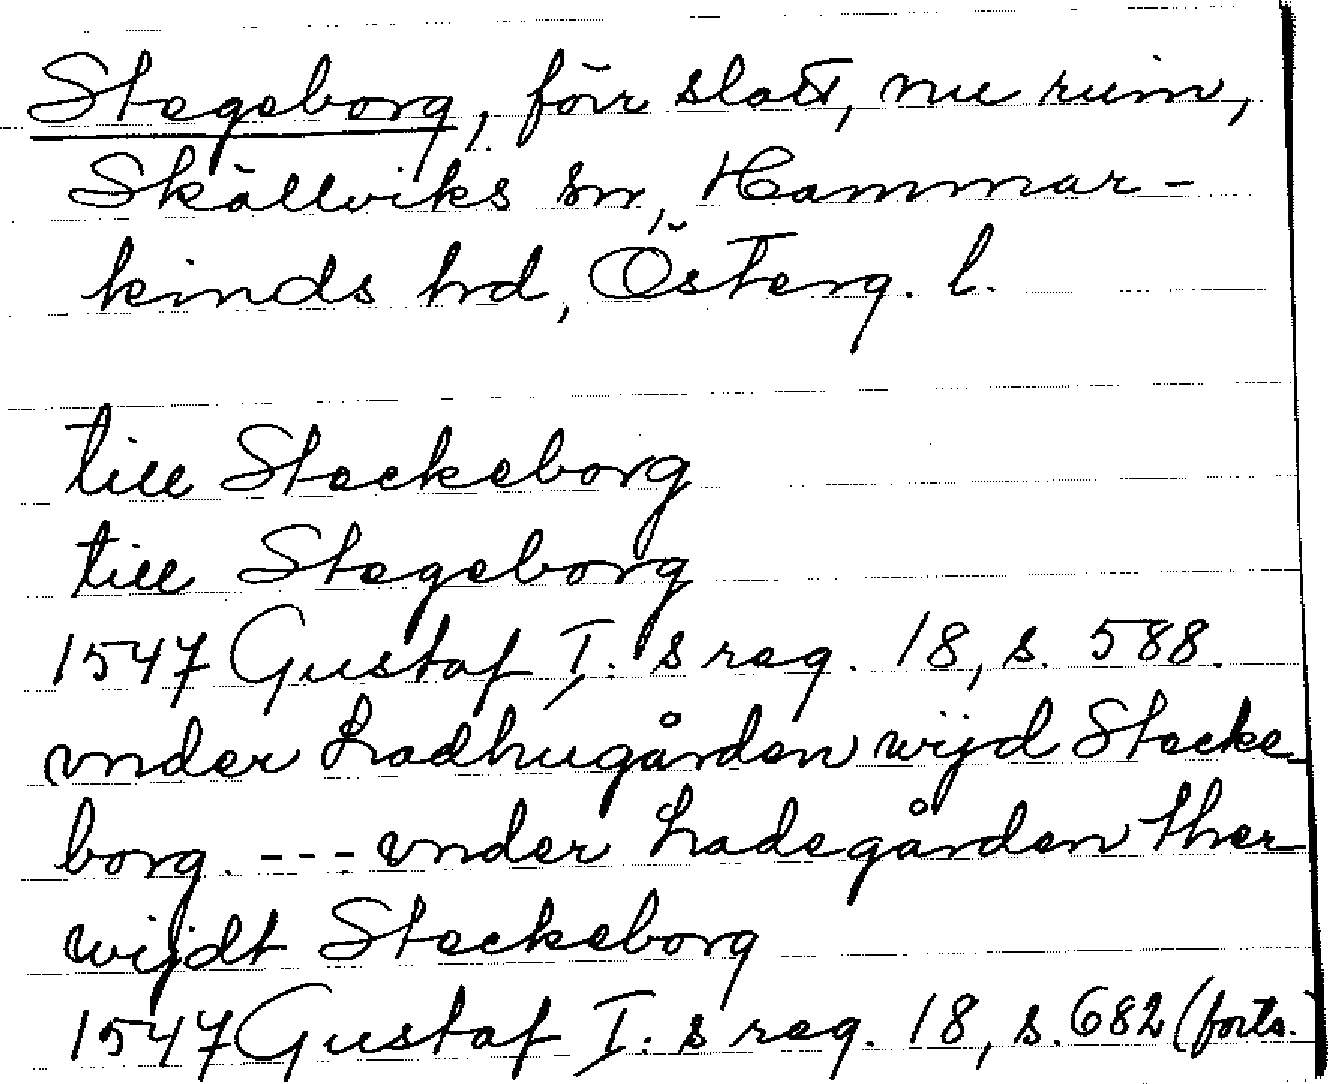 Stegeborg, förr slott, nu ruin,
Skällviks sn, Hammar-
kinds hd, Österg. l.
till Steckeborg
till Stegeborg
1547 Gustaf I:s reg. 18, s. 588.
vnder Ladhugården wijd Stecke-
borg. --- vnder Ladegården ther
wijdt Steckeborg
1547 Gustaf I:s reg. 18, s. 682 (forts.